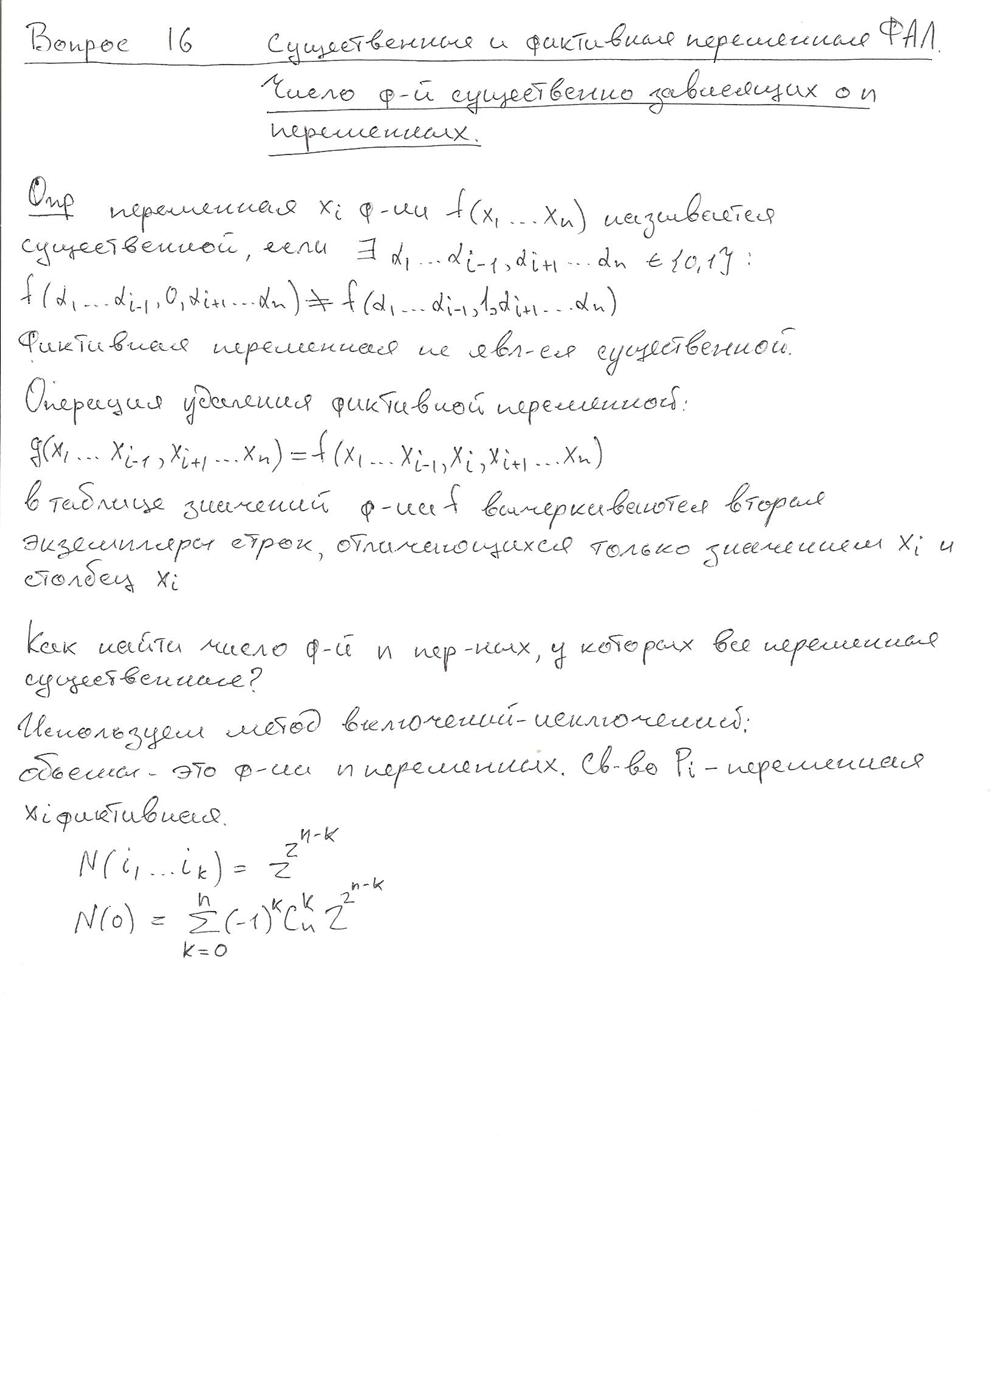 Вопрос 16 Существенная и фиктивная переменная ФАЛ.
Число ф-й существенно зависящих о n
переменных.
Опр переменная xᵢ ф-ии f(x₁...xₙ) называется
существенной, если ∃ α₁...αᵢ₋₁,αᵢ₊₁...αₙ ∈ {0,1}:
f(α₁...αᵢ₋₁,0,αᵢ₊₁...αₙ) ≠ f(α₁...αᵢ₋₁,1,αᵢ₊₁...αₙ)
Фиктивная переменная не явл-ся существенной.
Операция удаления фиктивной переменной:
g(x₁...xᵢ₋₁,xᵢ₊₁...xₙ)=f(x₁...xᵢ₋₁,xᵢ,xᵢ₊₁...xₙ)
в таблице значений ф-ии f вычеркиваются вторая
экземпляры строк, отличающихся только значением xᵢ и
столбец xᵢ
Как найти число ф-й n пер-ных, у которых все переменная
существенные?
Используем метод включений-исключений:
объекты - это ф-ии n переменных. Св-во Pᵢ - переменная
xᵢ фиктивная.
N(i₁...iₖ) = 2^2^(n-k)
N(0) = Σ_{k=0}^{n} (-1)^k C_n^k 2^2^(n-k)